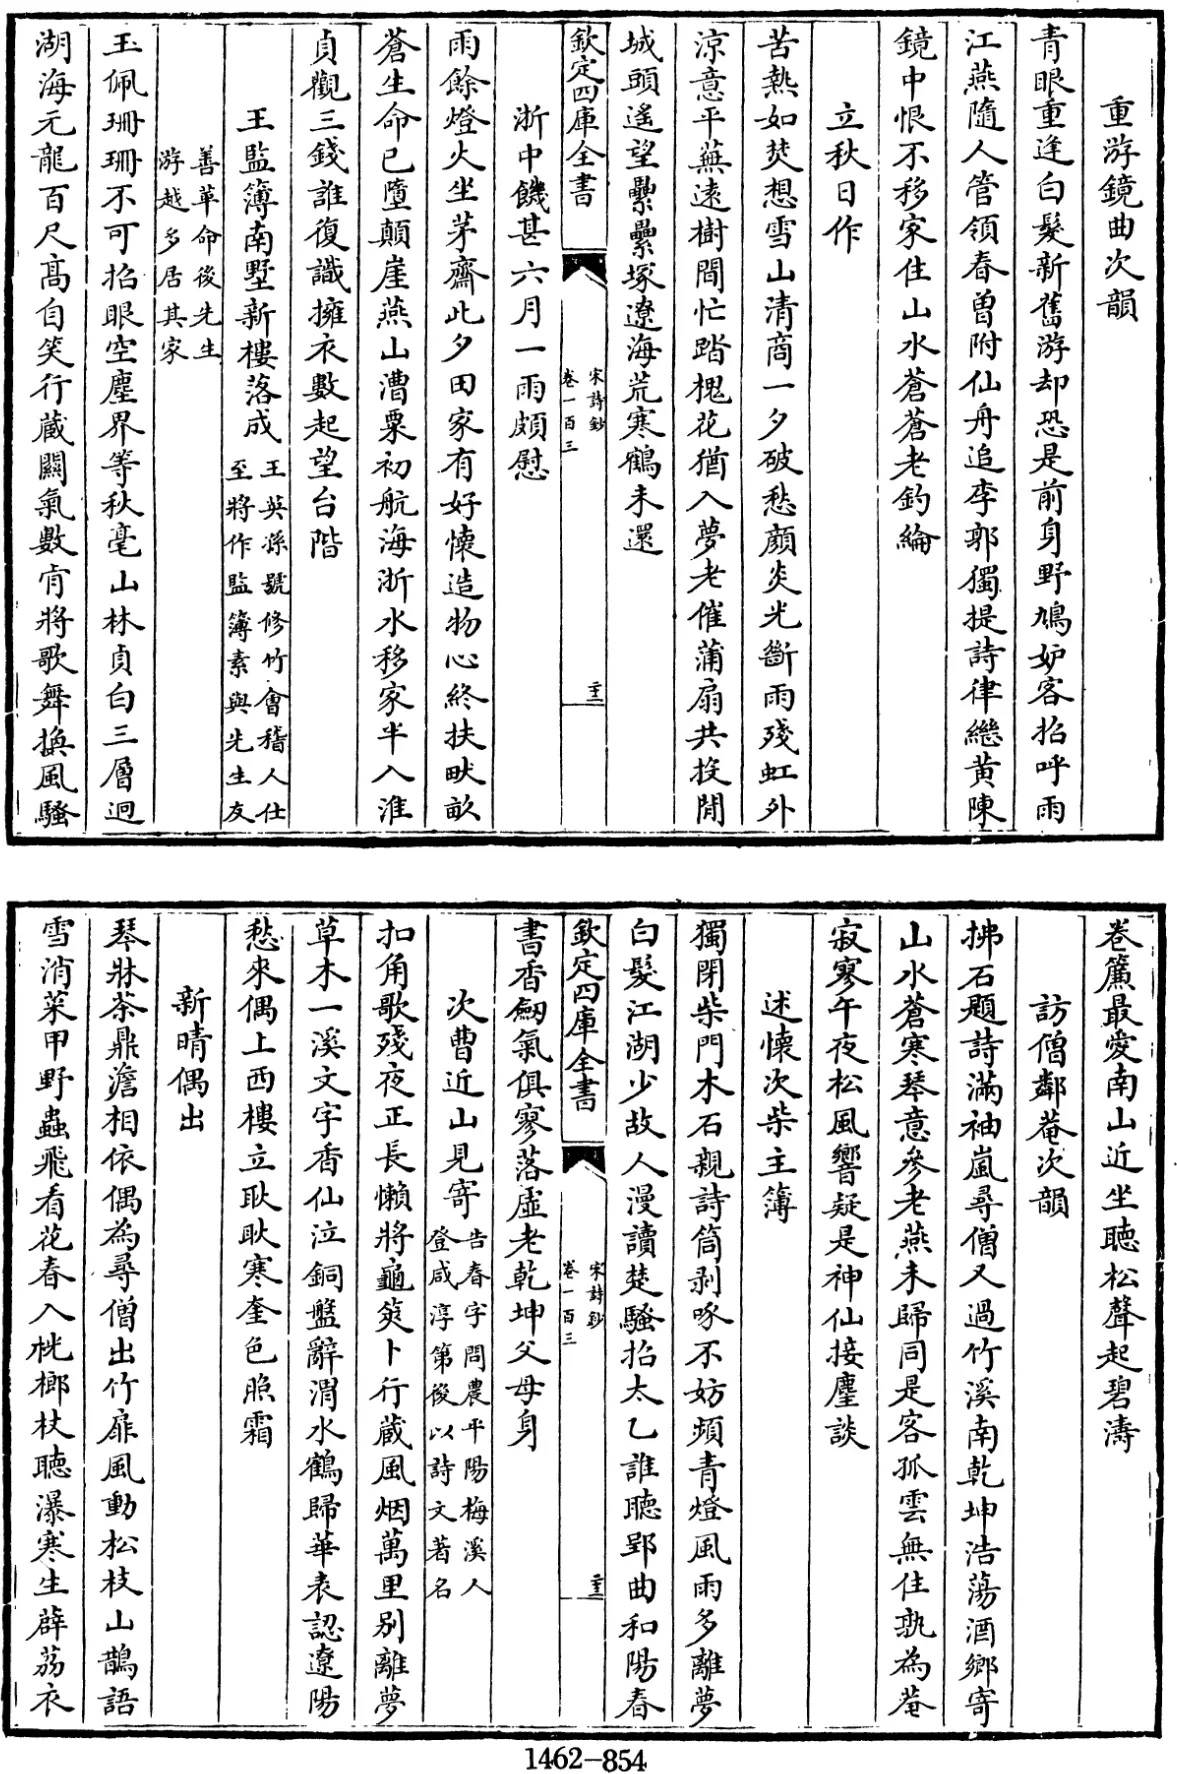 重游鏡曲次韻
青眼重逢白髮新舊游却恐是前身野鳩妒客招呼雨
江燕隨人管領春曽附仙舟追李郭獨提詩律繼黄陳
鏡中恨不移家住山水蒼蒼老釣綸
立秋日作
苦熱如焚想雪山清商一夕破愁顔炎光斷雨殘虹外
涼意平蕪遠樹間忙踏槐花猶入夢老催蒲扇共投閒
城頭遥望纍纍塚遼海荒寒鶴未還
欽定四庫全書
宋詩鈔
卷一百三
浙中饑甚六月一雨頗慰
雨餘燈火坐茅齋此夕田家有好懐造物心終扶畎畝
蒼生命已墮顛崖燕山漕粟初航海浙水移家半入淮
貞觀三錢誰復識擁衣數起望台階
王監簿南墅新樓落成
王英孫號修竹會稽人仕
至將作監簿素與先生友
善革命後先生
游越多居其家
玉佩珊珊不可招眼空塵界等秋毫山林貞白三層迥
湖海元龍百尺高自笑行藏關氣數肯將歌舞換風騷
卷簾最愛南山近坐聽松聲起碧濤
訪僧鄰菴次韻
拂石題詩滿袖嵐尋僧又過竹溪南乾坤浩蕩酒鄉寄
山水蒼寒琴意參老燕未歸同是客孤雲無住孰為菴
寂寥午夜松風響疑是神仙接麈談
述懐次柴主簿
獨閉柴門木石親詩筒剥啄不妨頻青燈風雨多離夢
白髮江湖少故人漫讀楚騷招太乙誰聽郢曲和陽春
欽定四庫全書
宋詩鈔
卷一百三
書香劒氣俱寥落虚老乾坤父母身
次曹近山見寄
告春字問農平陽梅溪人
登咸淳第後以詩文著名
扣角歌殘夜正長懶將龜筴卜行藏風烟萬里别離夢
草木一溪文字香仙泣銅盤辭渭水鶴歸華表認遼陽
愁來偶上西樓立耿耿寒奎色照霜
新晴偶出
琴牀茶鼎澹相依偶為尋僧出竹扉風動松枝山鵲語
雪消菜甲野蟲飛看花春入桄榔杖聽瀑寒生薜荔衣
1462-854